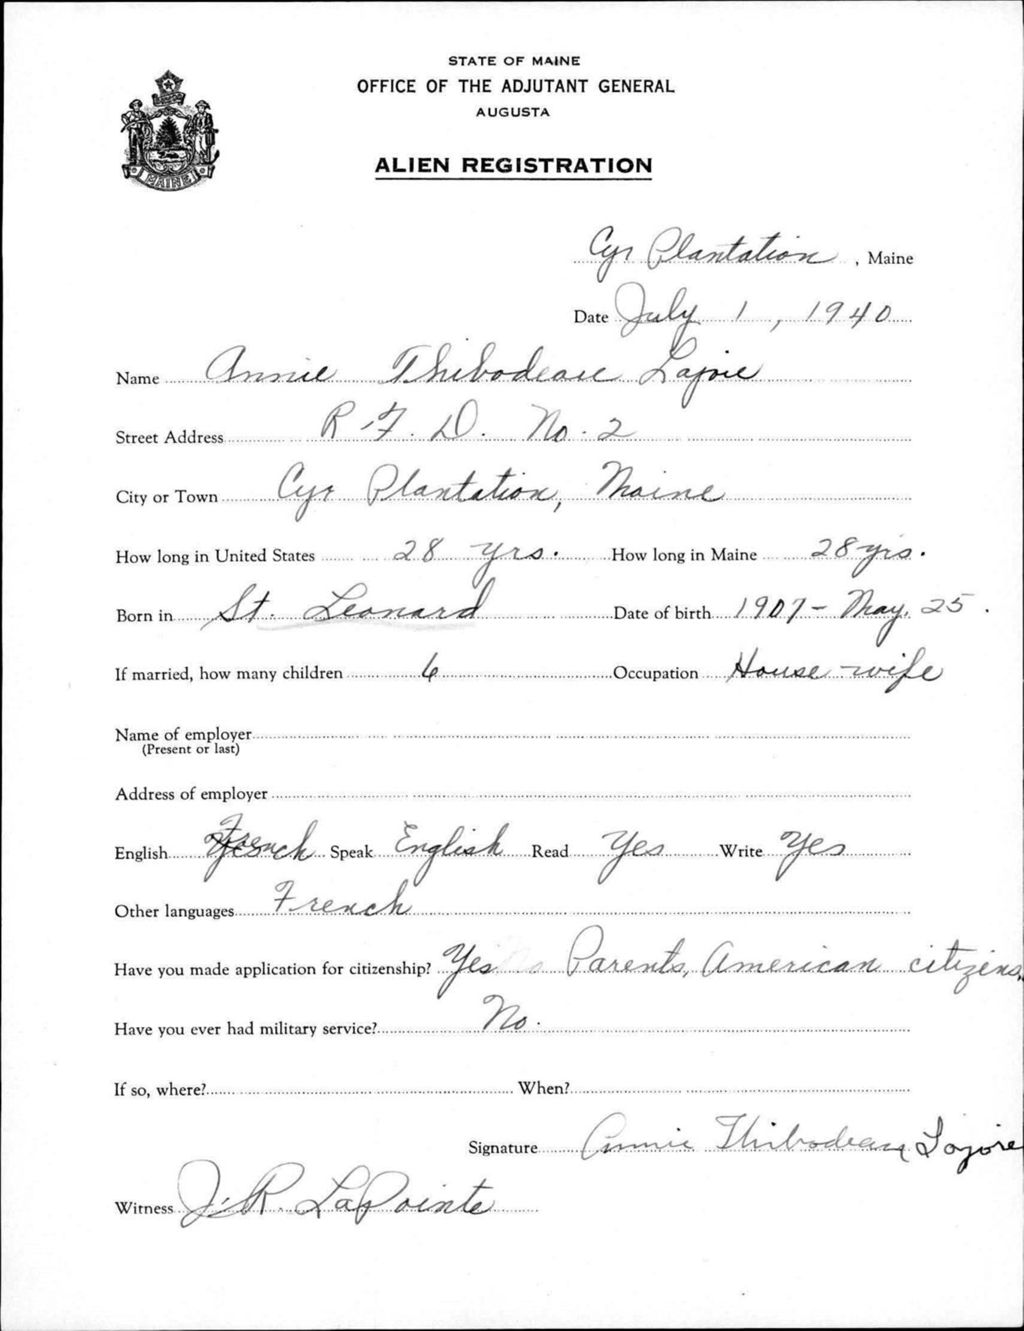 STATE OF MAINE
OFFICE OF THE ADJUTANT GENERAL
AUGUSTA
ALIEN REGISTRATION
MAINE
Cyr Plantation, Maine
Date July 1, 1940
Name Annie Thibodeau Lajoie
Street Address R.F.D. No. 2
City or Town Cyr Plantation, Maine
How long in United States 28 yrs. How long in Maine 28 yrs.
Born in St. Leonard Date of birth 1907 - May. 25.
If married, how many children 6 Occupation House-wife
Name of employer
(Present or last)
Address of employer
English French Speak English Read Yes Write Yes
Other languages French
Have you made application for citizenship? Yes Parents, American citizens.
Have you ever had military service? No.
If so, where? When?
Signature Annie Thibodeau Lajoie
Witness J. R. LaPointe